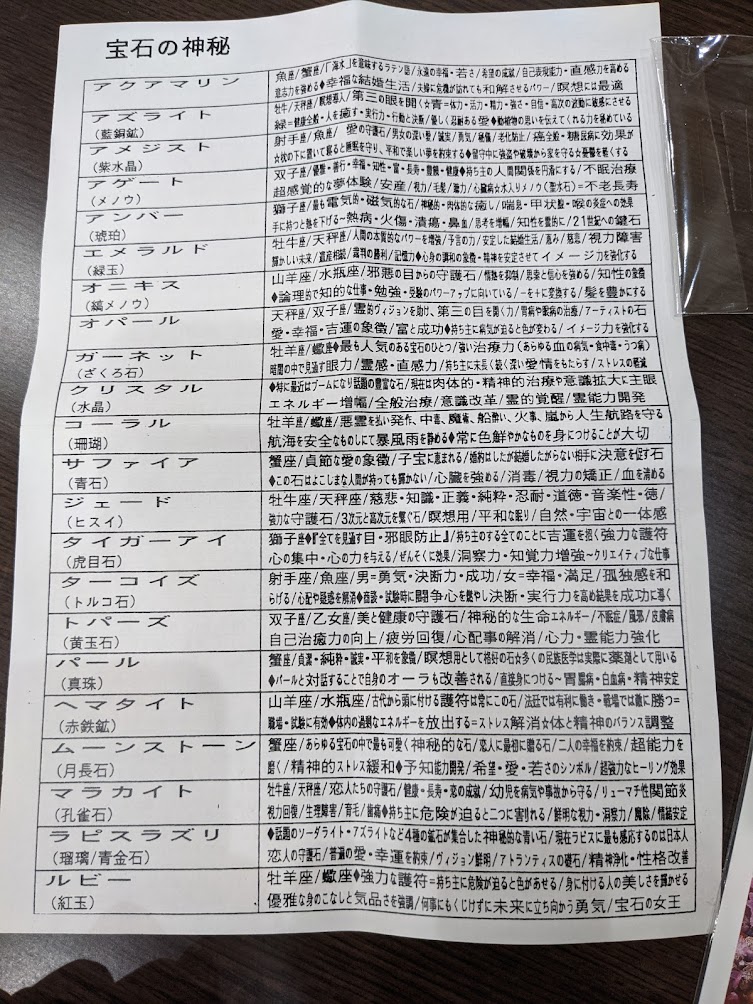 宝石の神秘
アクアマリン
魚座/蟹座/「海水」を意味するラテン語/永遠の幸福・若さ/希望の成就/自己表現能力・直感力を高める
意志力を強める◆幸福な結婚生活/夫婦に危機が訪れても和解させるパワー/瞑想には最適
アズライト
(藍銅鉱)
牡牛/天秤座/瞑想導入/第三の眼を開く☆青=体力・活力・精力・強さ・自信・高次の波動に敏感にさせる
緑=健康全般・人を癒す・実行力・行動と決断/優しく忍耐ある愛◆動植物の思いを伝えてくれる力を秘めている
アメジスト
(紫水晶)
射手座/魚座/愛の守護石/男女の深い繋/誠実/勇気/秘儀/老化防止/癌全般・糖尿病に効果が
☆枕の下に置いて寝ると睡眠を守り、平和で楽しい夢を約束する◆留守中に強盗や破壊から家を守る☆憂鬱を軽くする
アゲート
(メノウ)
双子座/優雅・善行・幸福・知性・富・長寿・豊饒・健康◆持ち主の人間関係を円満にする/不眠治療
超感覚的な夢体験/安産/視力/毛髪/聴力/心臓病☆水入りメノウく(聖水石)=不老長寿
アンバー
(琥珀)
獅子座/最も電気的・磁気的な石/神秘的・肉体的な癒し/喘息・甲状腺・喉の炎症への効果
手に持つと熱を下げる~熱病・火傷・潰瘍・鼻血/思考を増幅/知性を霊的に/21世紀への鍵石
エメラルド
(緑玉)
牡牛座/天秤座/人間の本質的なパワーを増強/予言の力/安定した結婚生活/恵み/慈悲/視力障害
輝かしい未来/遺産相続/裁判の勝利/記憶力◆心身の調和の象徴・精神を安定させてイメージ力を強化する
オニキス
(縞メノウ)
山羊座/水瓶座/邪悪の目からの守護石/情熱を抑制/思慮と信心を強める/知性の象徴
◆論理的で知的な仕事・勉強・受験のパワーアップに向いている/-を+に変換する/髪を豊かにする
オパール
天秤座/双子座/霊的ヴィジョンを助け、第三の目を開く力/胃病や眼病の治療/アーティストの石
愛・幸福・吉運の象徴/富と成功◆持ち主に病気が迫ると色が変わる/イメージ力を強化する
ガーネット
(ざくろ石)
牡羊座/蠍座◆最も人気のある宝石のひとつ/強い治療力(あらゆる血の病気・食中毒・うつ病)
暗闇の中で見通す眼力/霊感・直感力/持ち主に末長く続く深い愛情をもたらす/ストレスの軽減
クリスタル
(水晶)
◆特に最近はブームになり話題の豊富な石/現在は肉体的・精神的治療や意識拡大に主眼
エネルギー増幅/全般治療/意識改革/霊的覚醒/霊能力開発
コーラル
(珊瑚)
牡羊座/蠍座/悪霊を払い発作、中毒、魔術、船酔い、火事、嵐から人生航路を守る
航海を安全なものにして暴風雨を静める◆常に色鮮やかなものを身につけることが大切
サファイア
(青石)
蟹座/貞節な愛の象徴/子宝に恵まれる/婚約はしたが結婚したがらない相手に決意を促す石
◆この石はよこしまな人間が持っても輝かない/心臓を強める/消毒/視力の矯正/血を清める
ジェード
(ヒスイ)
牡牛座/天秤座/慈悲・知識・正義・純粋・忍耐・道徳・音楽性・徳/
強力な守護石/3次元と高次元を繋ぐ石/瞑想用/平和な眠り/自然・宇宙との一体感
タイガーアイ
(虎目石)
獅子座◆『全てを見通す目・邪眼防止』/持ち主のする全てのことに吉運を招く強力な護符
心の集中・心の力を与える/ぜんそくに効果/洞察力・知覚力増強~クリエイティブな仕事
ターコイズ
(トルコ石)
射手座/魚座/男=勇気・決断力・成功/女=幸福・満足/孤独感を和
らげる/心配や疑惑を解消◆面談・試験時に闘争心を燃やし決断・実行力を高め結果を成功に導く
トパーズ
(黄玉石)
双子座/乙女座/美と健康の守護石/神秘的な生命エネルギー/不眠症/風邪/皮膚病
自己治癒力の向上/疲労回復/心配事の解消/心力・霊能力強化
パール
(真珠)
蟹座/貞潔・純粋・誠実・平和を象徴/瞑想用として格好の石☆多くの民族医学は実際に薬剤として用いる
◆パールと対話することで自身のオーラも改善される/直接身につける~胃腸病・白血病・精神安定
ヘマタイト
(赤鉄鉱)
山羊座/水瓶座/古代から頭に付ける護符は常にこの石/法廷では有利に働き・戦場では敵に勝つ=
職場・試験に有効◆体内の過剰なエネルギーを放出する=ストレス解消☆体と精神のバランス調整
ムーンストーン
(月長石)
蟹座/あらゆる宝石の中で最も可愛く神秘的な石/恋人に最初に贈る石/二人の幸福を約束/超能力を
磨く/精神的ストレス緩和◆予知能力開発/希望・愛・若さのシンボル/超強力なヒーリング効果
マラカイト
(孔雀石)
牡牛座/天秤座/恋人たちの守護石/健康・長寿・恋の成就/幼児を病気や事故から守る/リューマチ性関節炎
視力回復/生理障害/育毛/歯痛◆持ち主に危険が迫ると二つに割れる/鮮明な視力・洞察力/魔除/情緒安定
ラピスラズリ
(瑠璃/青金石)
◆話題のソーダライト・アズライトなど4種の鉱石が集合した神秘的な青い石/現在ラピスに最も感応するのは日本人
恋人の守護石/普遍の愛・幸運を約束/ヴィジョン鮮明/アトランティスの礎石/精神浄化・性格改善
ルビー
(紅玉)
牡羊座/蠍座◆強力な護符=持ち主に危険が迫ると色があせる/身に付ける人の美しさを輝かせる
優雅な身のこなしと気品さを強調/何事にもくじけずに未来に立ち向かう勇気/宝石の女王